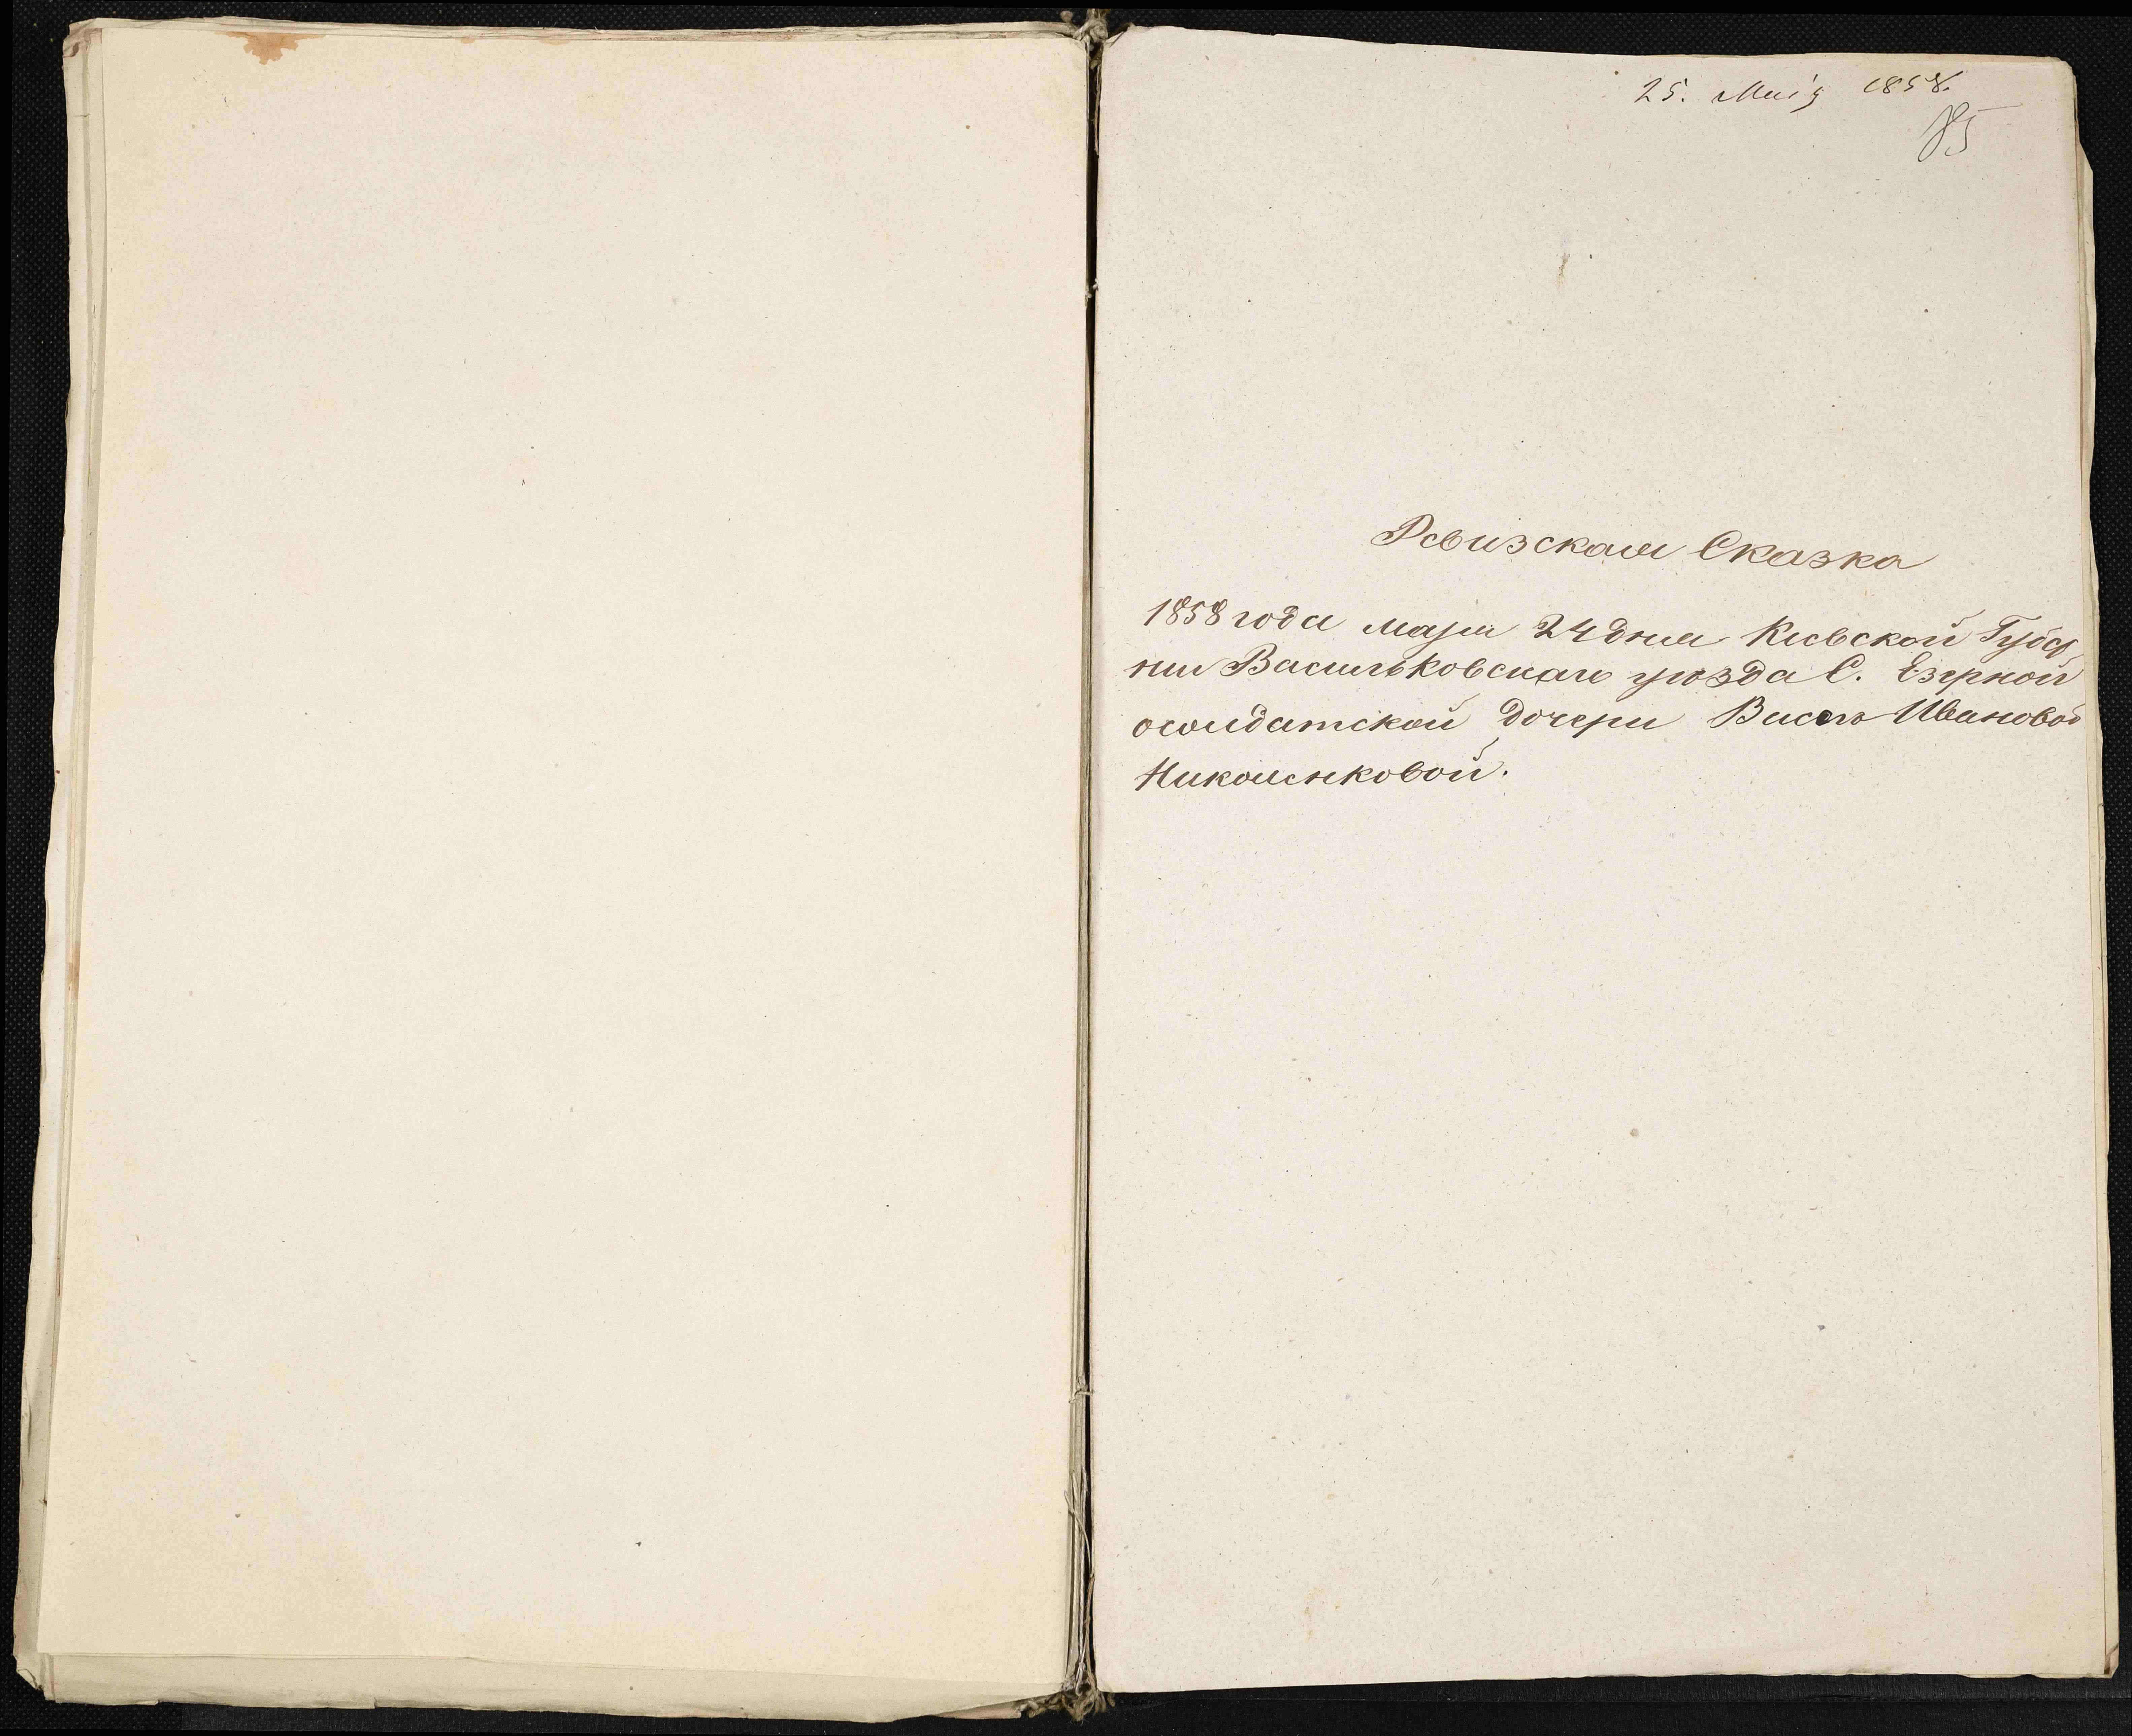 25. Маія 1858.
85
Ревизская Сказка
1858 года мая 24 дня Киевской Губер
нии Васильковскаго уѣзда С. Езерной
осолдатской дочери Ивановой
Николенковой.